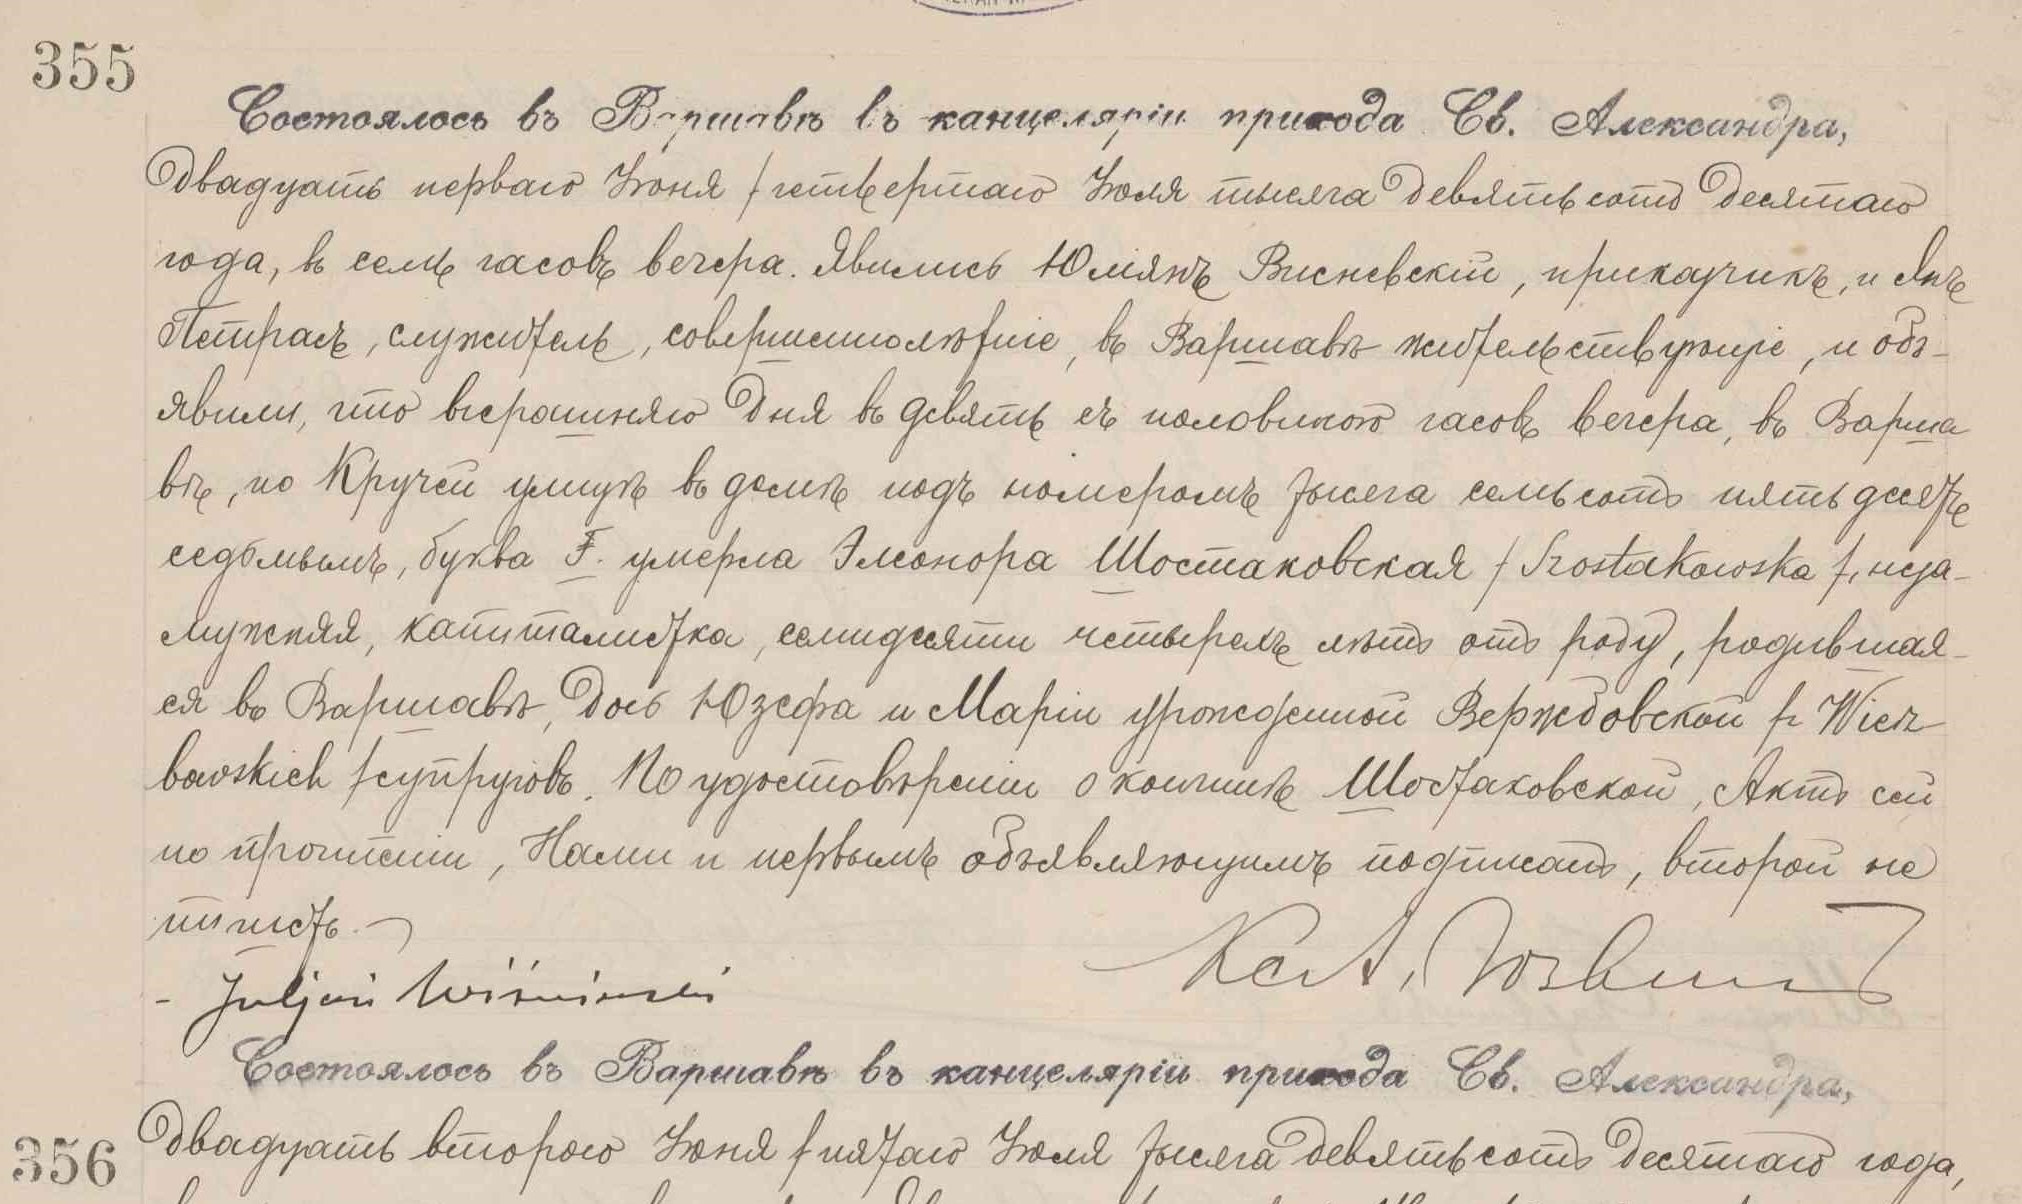 355
Состоялось въ Варшавѣ въ канцеляріи прихода Св. Александра,
двадцать перваго Іюня /четвертаго Іюля тысяча девятьсотъ десятаго
года, въ семь часовъ вечера. Явились Юліянъ Висневскій, прикащикъ, и Янъ
Петрасъ, служитель, совершеннолѣтніе, въ Варшавѣ жительствующіе, и объ-
явили, что вчерашняго дня въ девять съ половиною часовъ вечера, въ Варша
вѣ, по Кручей улицѣ въ домѣ подъ номеромъ тысяча семьсотъ пятьдесятъ
седьмымъ, буква F. умерла Элеонора Шостаковская /Szostakowska/, неза-
мужняя, капиталистка, семидесяти четырехъ лѣтъ отъ роду, родившая-
ся въ Варшавѣ, дочь Юзефа и Маріи урожденной Вержбовской /z Wierz
bowskich/ супруговъ. По удостовѣреніи о кончинѣ Шостаковской, Актъ сей
по прочтеніи, Нами и первымъ объявляющимъ подписанъ, второй не
пишетъ.
Juljan Wiśniewski
Состоялось въ Варшавѣ въ канцеляріи прихода Св. Александра,
356
двадцать второго Іюня /пятаго Іюля тысяча девятьсотъ десятаго года,